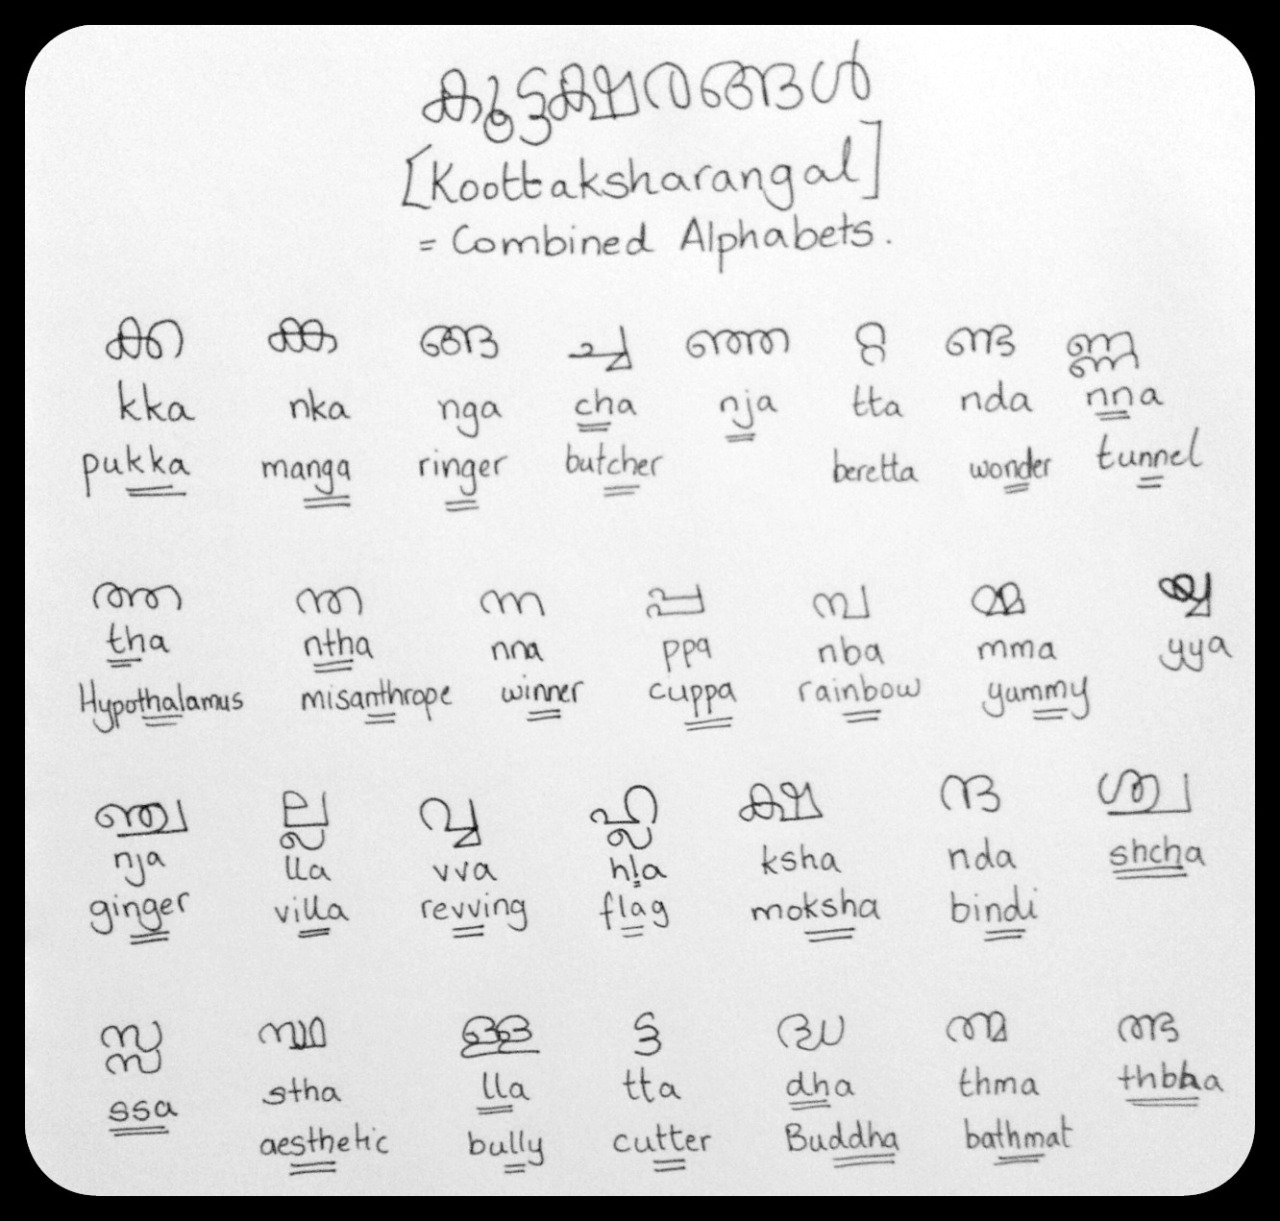 കൂട്ടക്ഷരങ്ങൾ
[Koottaksharangal]
= Combined Alphabets.
ക്ക ങ്ക ങ്ങ ച്ച ഞ്ഞ റ്റ ണ്ട ണ്ണ
kka nka nga cha nja tta nda nna
pukka manga ringer butcher beretta wonder tunnel
ത്ത ന്ത ന്ന പ്പ മ്പ മ്മ യ്യ
tha ntha nna ppa nba mma yya
Hypothalamus misanthrope winner cuppa rainbow yummy
ഞ്ച ല്ല വ്വ ഹ്ല ക്ഷ ന്ദ ശ്ച
nja lla vva hla ksha nda shcha
ginger villa revving flag moksha bindi
സ്സ സ്ഥ ള്ള ട്ട ദ്ധ ത്മ ത്ഭ
ssa stha lla tta dha thma thbha
aesthetic bully cutter Buddha bathmat